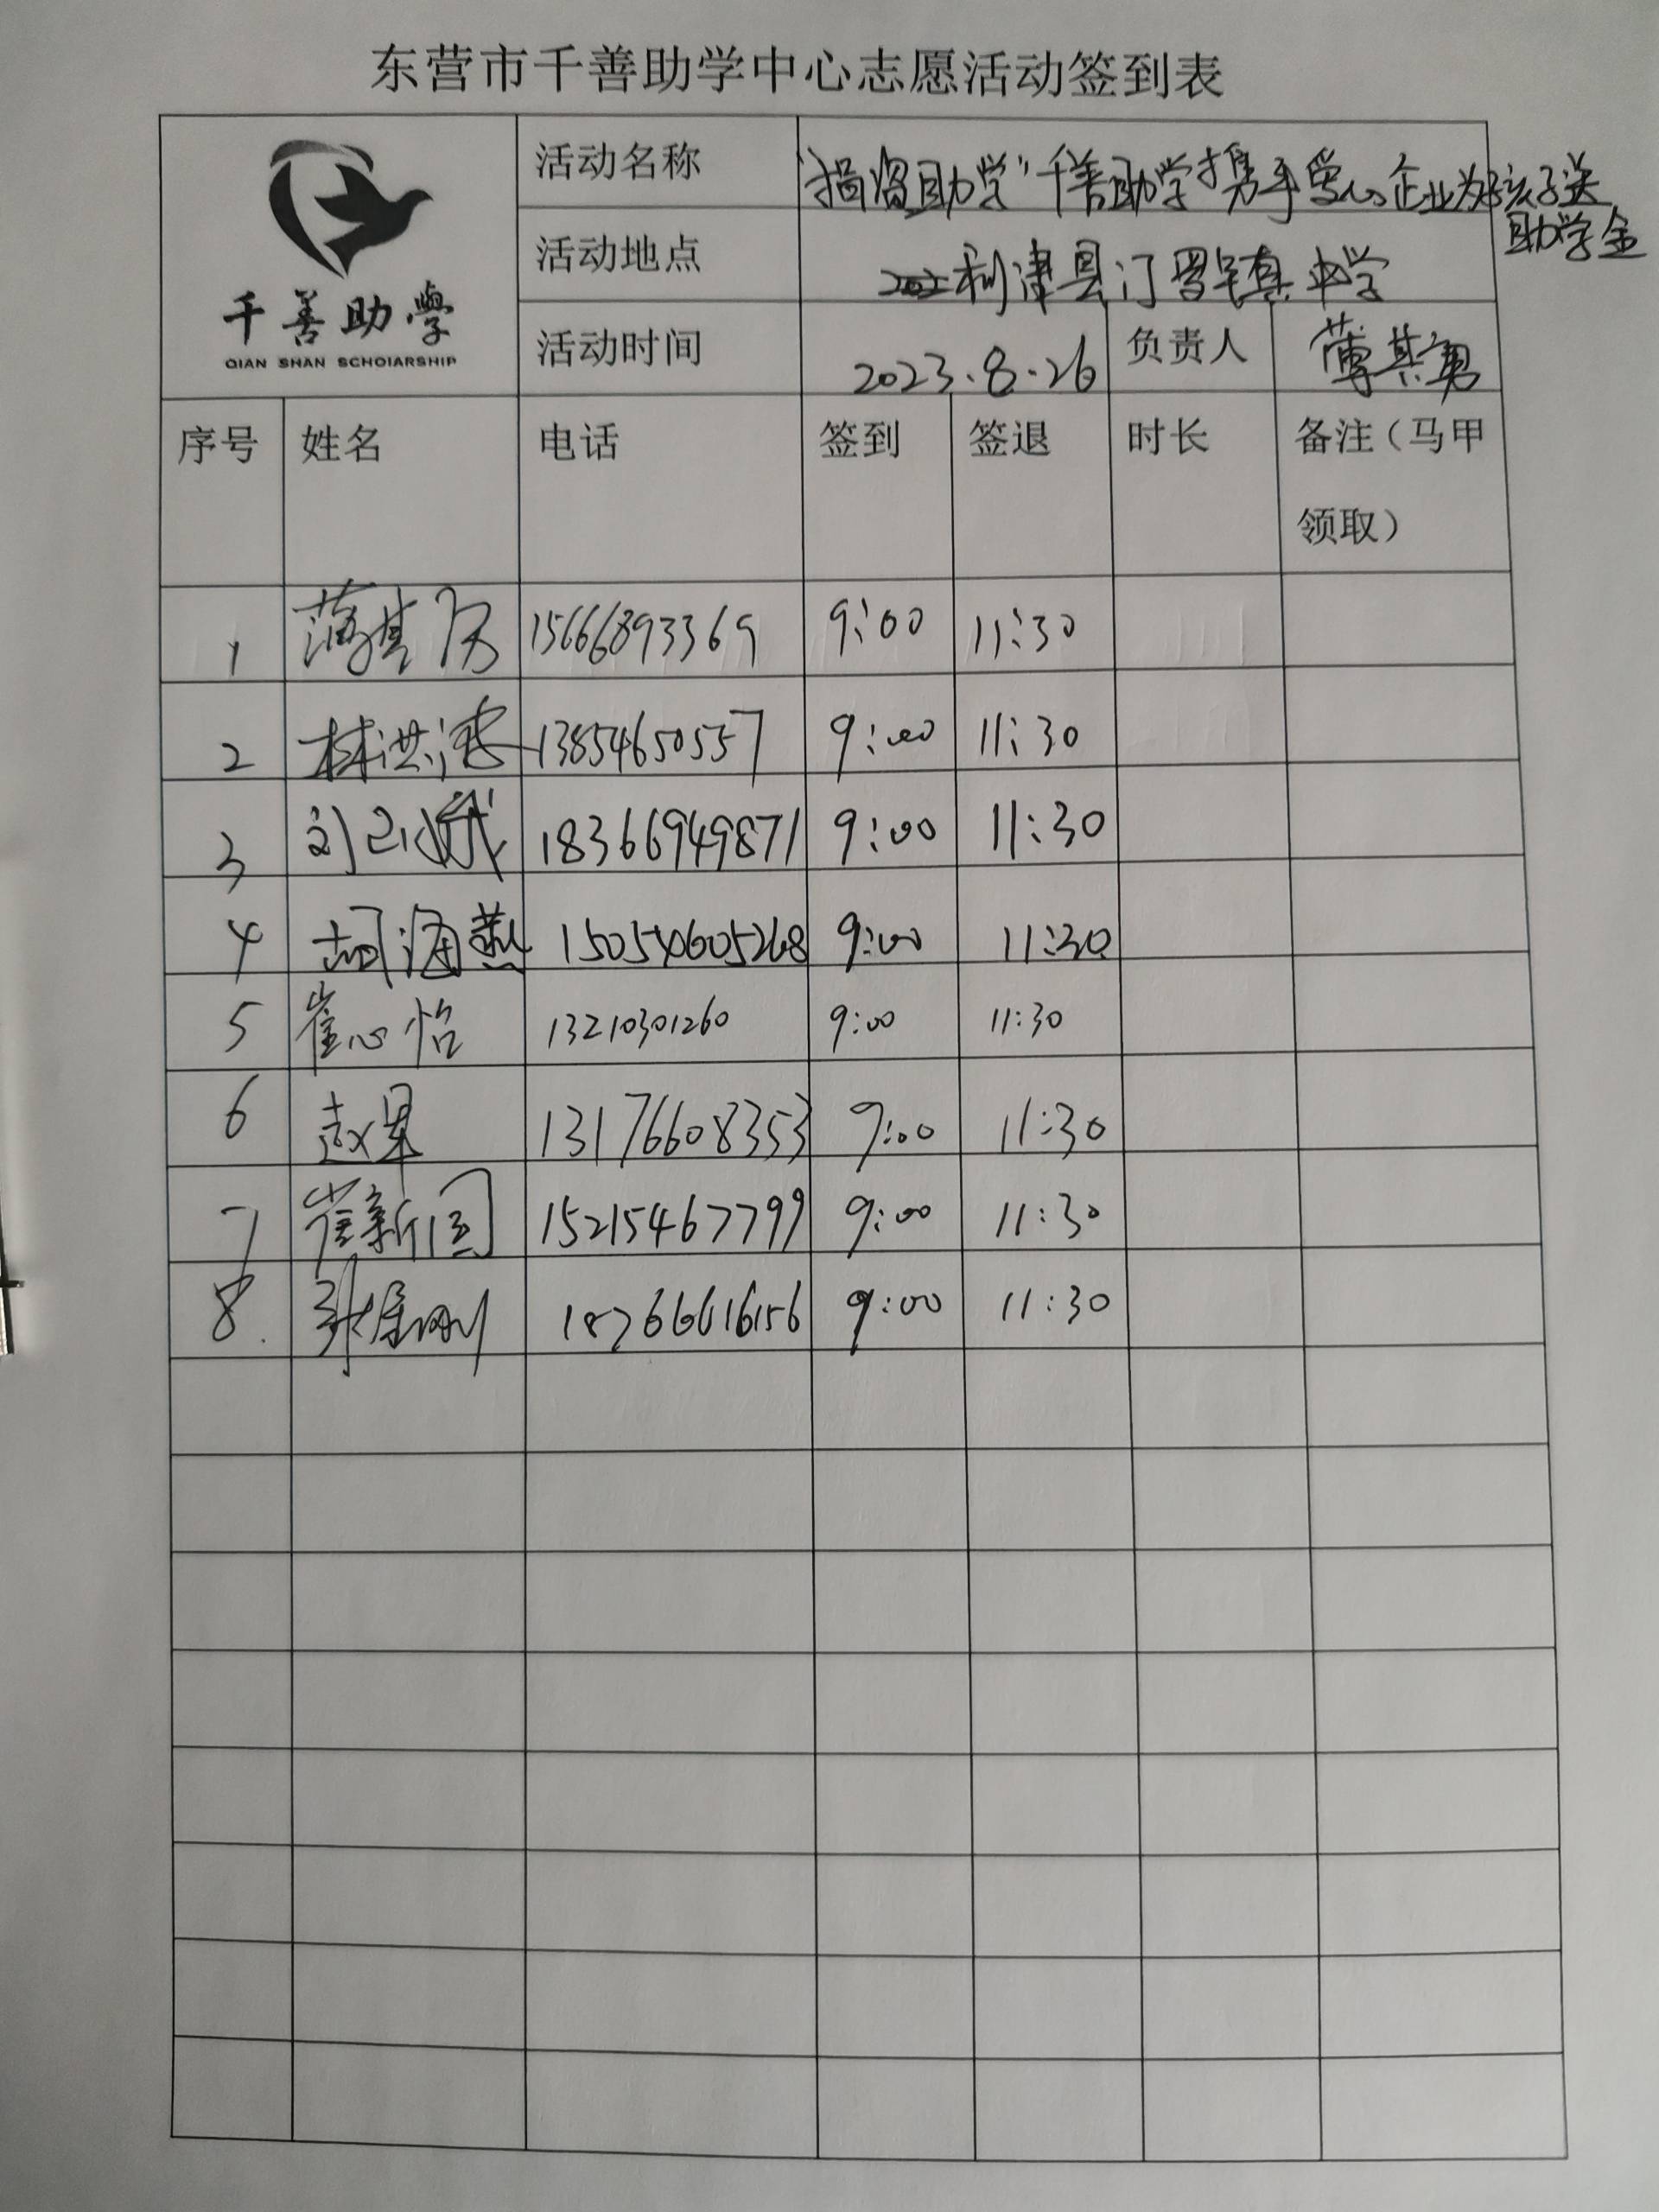 东营市千善助学中心志愿活动签到表
千善助學
QIAN SHAN SCHOIARSHIP
活动名称 "捐资助学"千善助学携手爱心企业为孩子送
助学金
活动地点 利津县汀罗镇中学
活动时间 2023.8.26 负责人 薄其勇
序号 姓名 电话 签到 签退 时长 备注（马甲
领取）
1 薄其 15666893369 9:00 11:30
2 林洪 13854650557 9:00 11:30
3 刘 18366949871 9:00 11:30
4 胡海燕 15054605268 9:00 11:30
5 崔心怡 13210301260 9:00 11:30
6 赵果 13176608353 9:00 11:30
7 崔新国 15215467799 9:00 11:30
8. 9:00 11:30